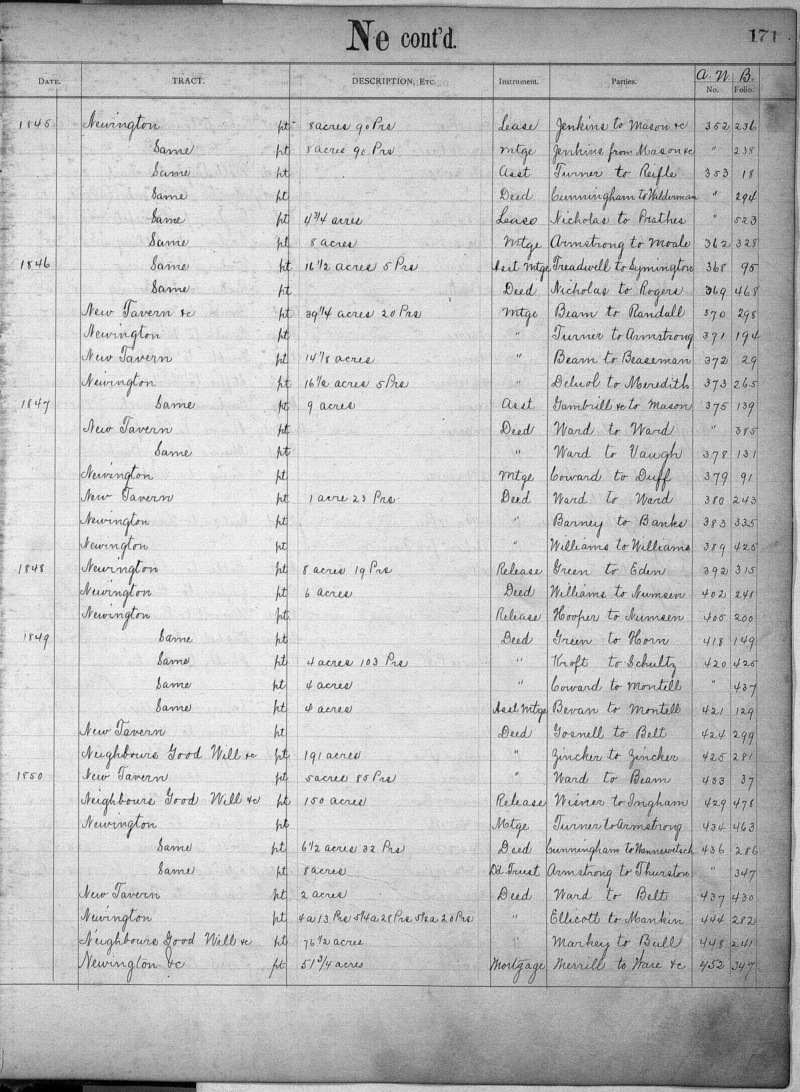 Ne cont'd.
171
DATE. TRACT. DESCRIPTION, ETC. Instrument. Parties. A. W. B. No. Folio.
1845 Newington pt 8 acres 90 Prs Lease Jenkins to Mason &c 352 236
Same pt 8 acres 90 Prs Mtge Jenkins from Mason &c " 238
Same pt Asst Turner to Reifle 353 18
Same pt Deed Cunningham to Welderman " 294
Same pt 4 3/4 acres Lease Nicholas to Prather " 523
Same pt 8 acres Mtge Armstrong to Moale 362 328
1846 Same pt 16 1/2 acres 5 Prs Asst Mtge Treadwell to Symington 368 95
Same pt Deed Nicholas to Rogers 369 468
New Tavern &c pt 39 1/4 acres 20 Prs Mtge Beam to Randall 370 298
Newington pt " Turner to Armstrong 371 194
New Tavern pt 14 7/8 acres " Beam to Beaseman 372 29
Newington pt 16 1/2 acres 5 Prs " Deluol to Meredith 373 265
1847 Same pt 9 acres Asst Gambrill &c to Mason 375 139
New Tavern pt Deed Ward to Ward " 385
Same pt " Ward to Vaugh 378 131
Newington pt Mtge Coward to Duff 379 91
New Tavern pt 1 acre 23 Prs Deed Ward to Ward 380 243
Newington pt " Barney to Banks 383 335
Newington pt " Williams to Williams 389 425
1848 Newington pt 8 acres 19 Prs Release Green to Eden 392 315
Newington pt 6 acres Deed Williams to Numsen 402 248
Newington pt Release Hooper to Numsen 405 200
1849 Same pt Deed Green to Horn 418 149
Same pt 4 acres 103 Prs " Kroft to Schultz 420 425
Same pt 4 acres " Coward to Montell " 437
Same pt 4 acres Asst Mtge Bevan to Montell 421 129
New Tavern pt Deed Gosnell to Belt 424 299
Neighbours Good Will &c pt 191 acres " Zincker to Zincker 425 281
1850 New Tavern pt 5 acres 85 Prs " Ward to Beam 433 37
Neighbours Good Will &c pt 150 acres Release Wisner to Ingham 429 478
Newington pt Mtge Turner to Armstrong 434 463
Same pt 6 1/2 acres 32 Prs Deed Cunningham to Wannewetsch 436 286
Same pt 8 acres Dd Trust Armstrong to Thurston " 347
New Tavern pt 2 acres Deed Ward to Belt 437 430
Newington pt 4 a 13 Prs 5 1/4 a 28 Prs 5 1/2 a 20 Prs " Ellicott to Mankin 444 282
Neighbours Good Will &c pt 76 1/2 acres " Markey to Bull 448 241
Newington &c pt 51 3/4 acres Mortgage Merrill to Ware &c 452 347